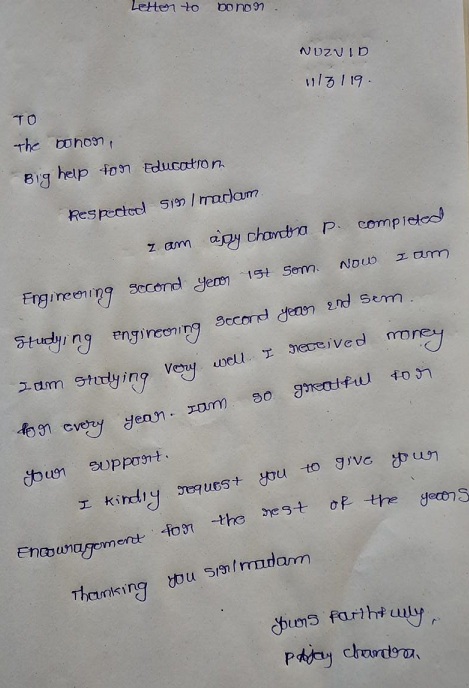 Letter to Donor.
NUZVID
11/3/19.
TO
The Donor,
Big help for Education.
Respected sir/madam
I am ajay chandra P. completed
Engineering second year 1st sem. Now I am
studying engineering second year 2nd sem.
I am studying very well. I received money
for every year. Iam so greatful for
your support.
I kindly request you to give your
Encouragement for the rest of the years
Thanking you sir/madam
Yours Faithfully,
P Ajay chandra.